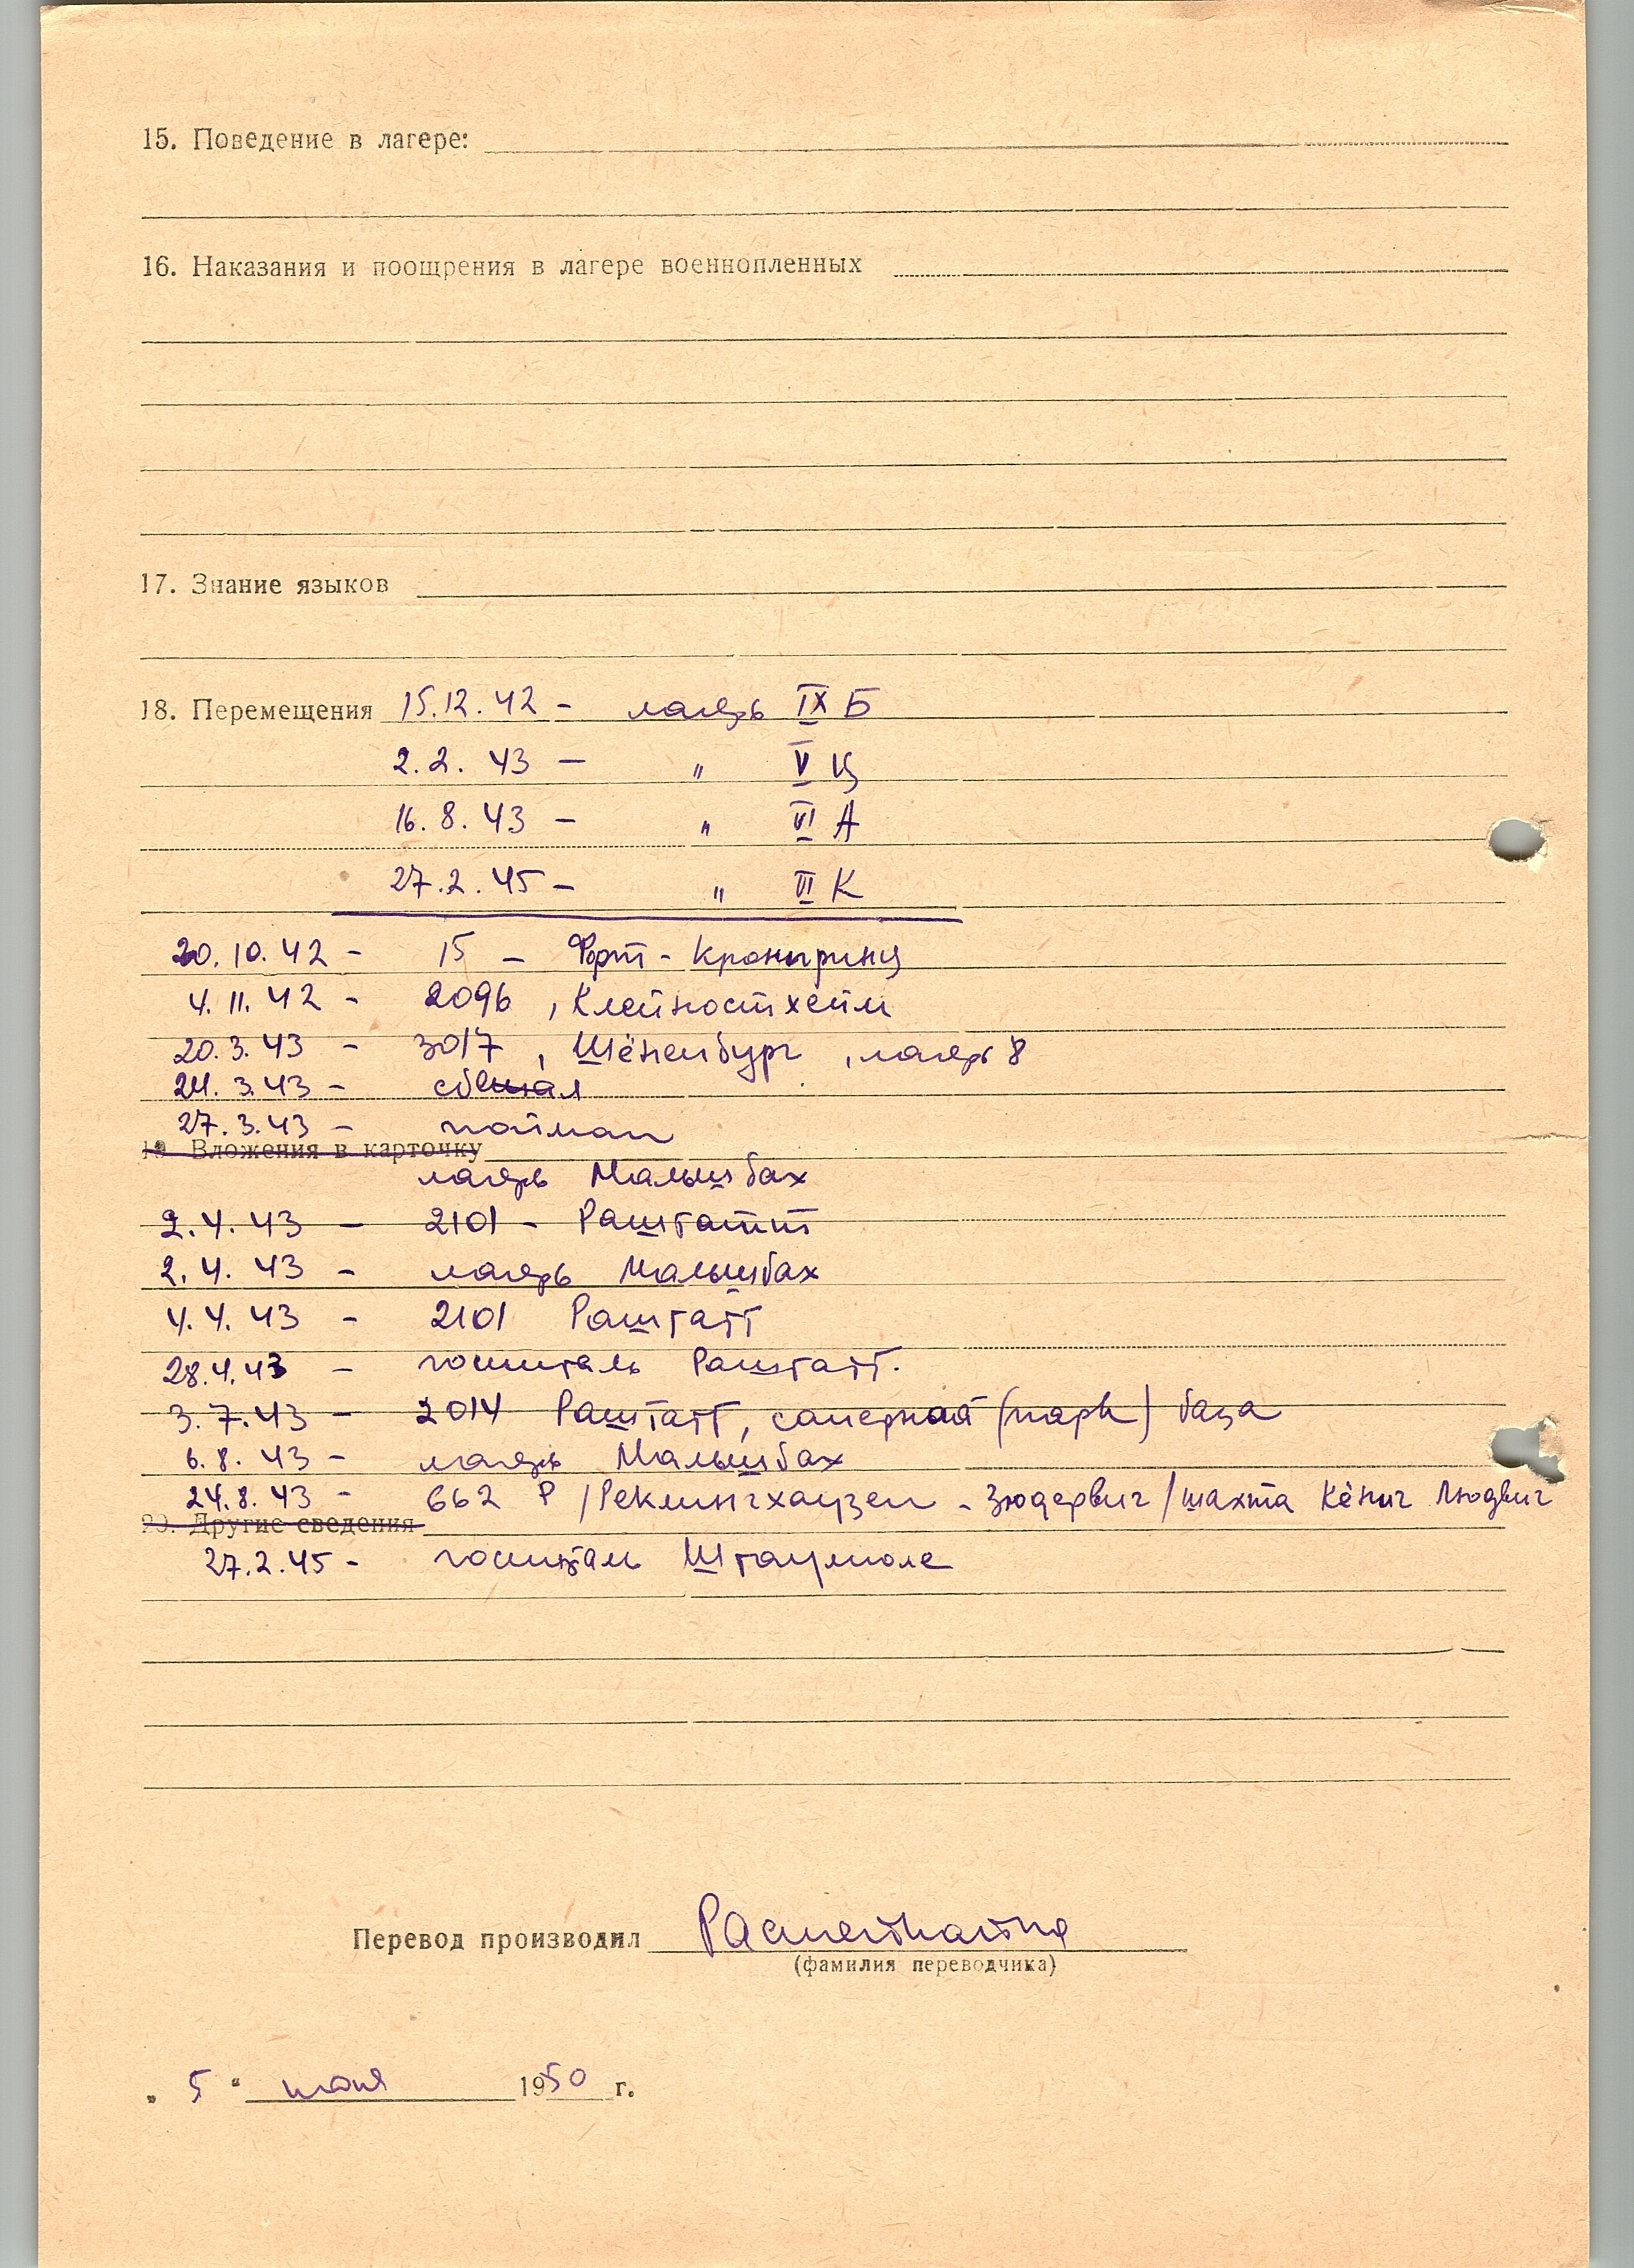 15. Поведение в лагере:
16. Наказания и поощрения в лагере военнопленных
17. Знание языков
18. Перемещения 15.12.42 – лагерь IX Б
2.2.43 – " V Ц
16.8.43 – " VI А
27.2.45 – " VI К
20.10.42 – 15 – Форт-Кронпринц
4.11.42 – 2096, Клейностхейм
20.3.43 – 3017, Шёненбург, лагерь 8
24.3.43 – сбежал
27.3.43 – пойман
19. Вложения в карточку
лагерь Мальшбах
2.4.43 – 2101 – Раштатт
2.4.43 – лагерь Мальшбах
4.4.43 – 2101 Раштатт
28.4.43 – госпиталь Раштатт.
3.7.43 – 2014 Раштатт, саперная (парк) база
6.8.43 – лагерь Мальшбах
24.8.43 – 662 Р /Реклингхаузен – Зюдервиг/шахта Кёниг Людвиг
20. Другие сведения
27.2.45 – госпиталь Штаумюле
Перевод производил
(фамилия переводчика)
„ 5 “ 1950 г.